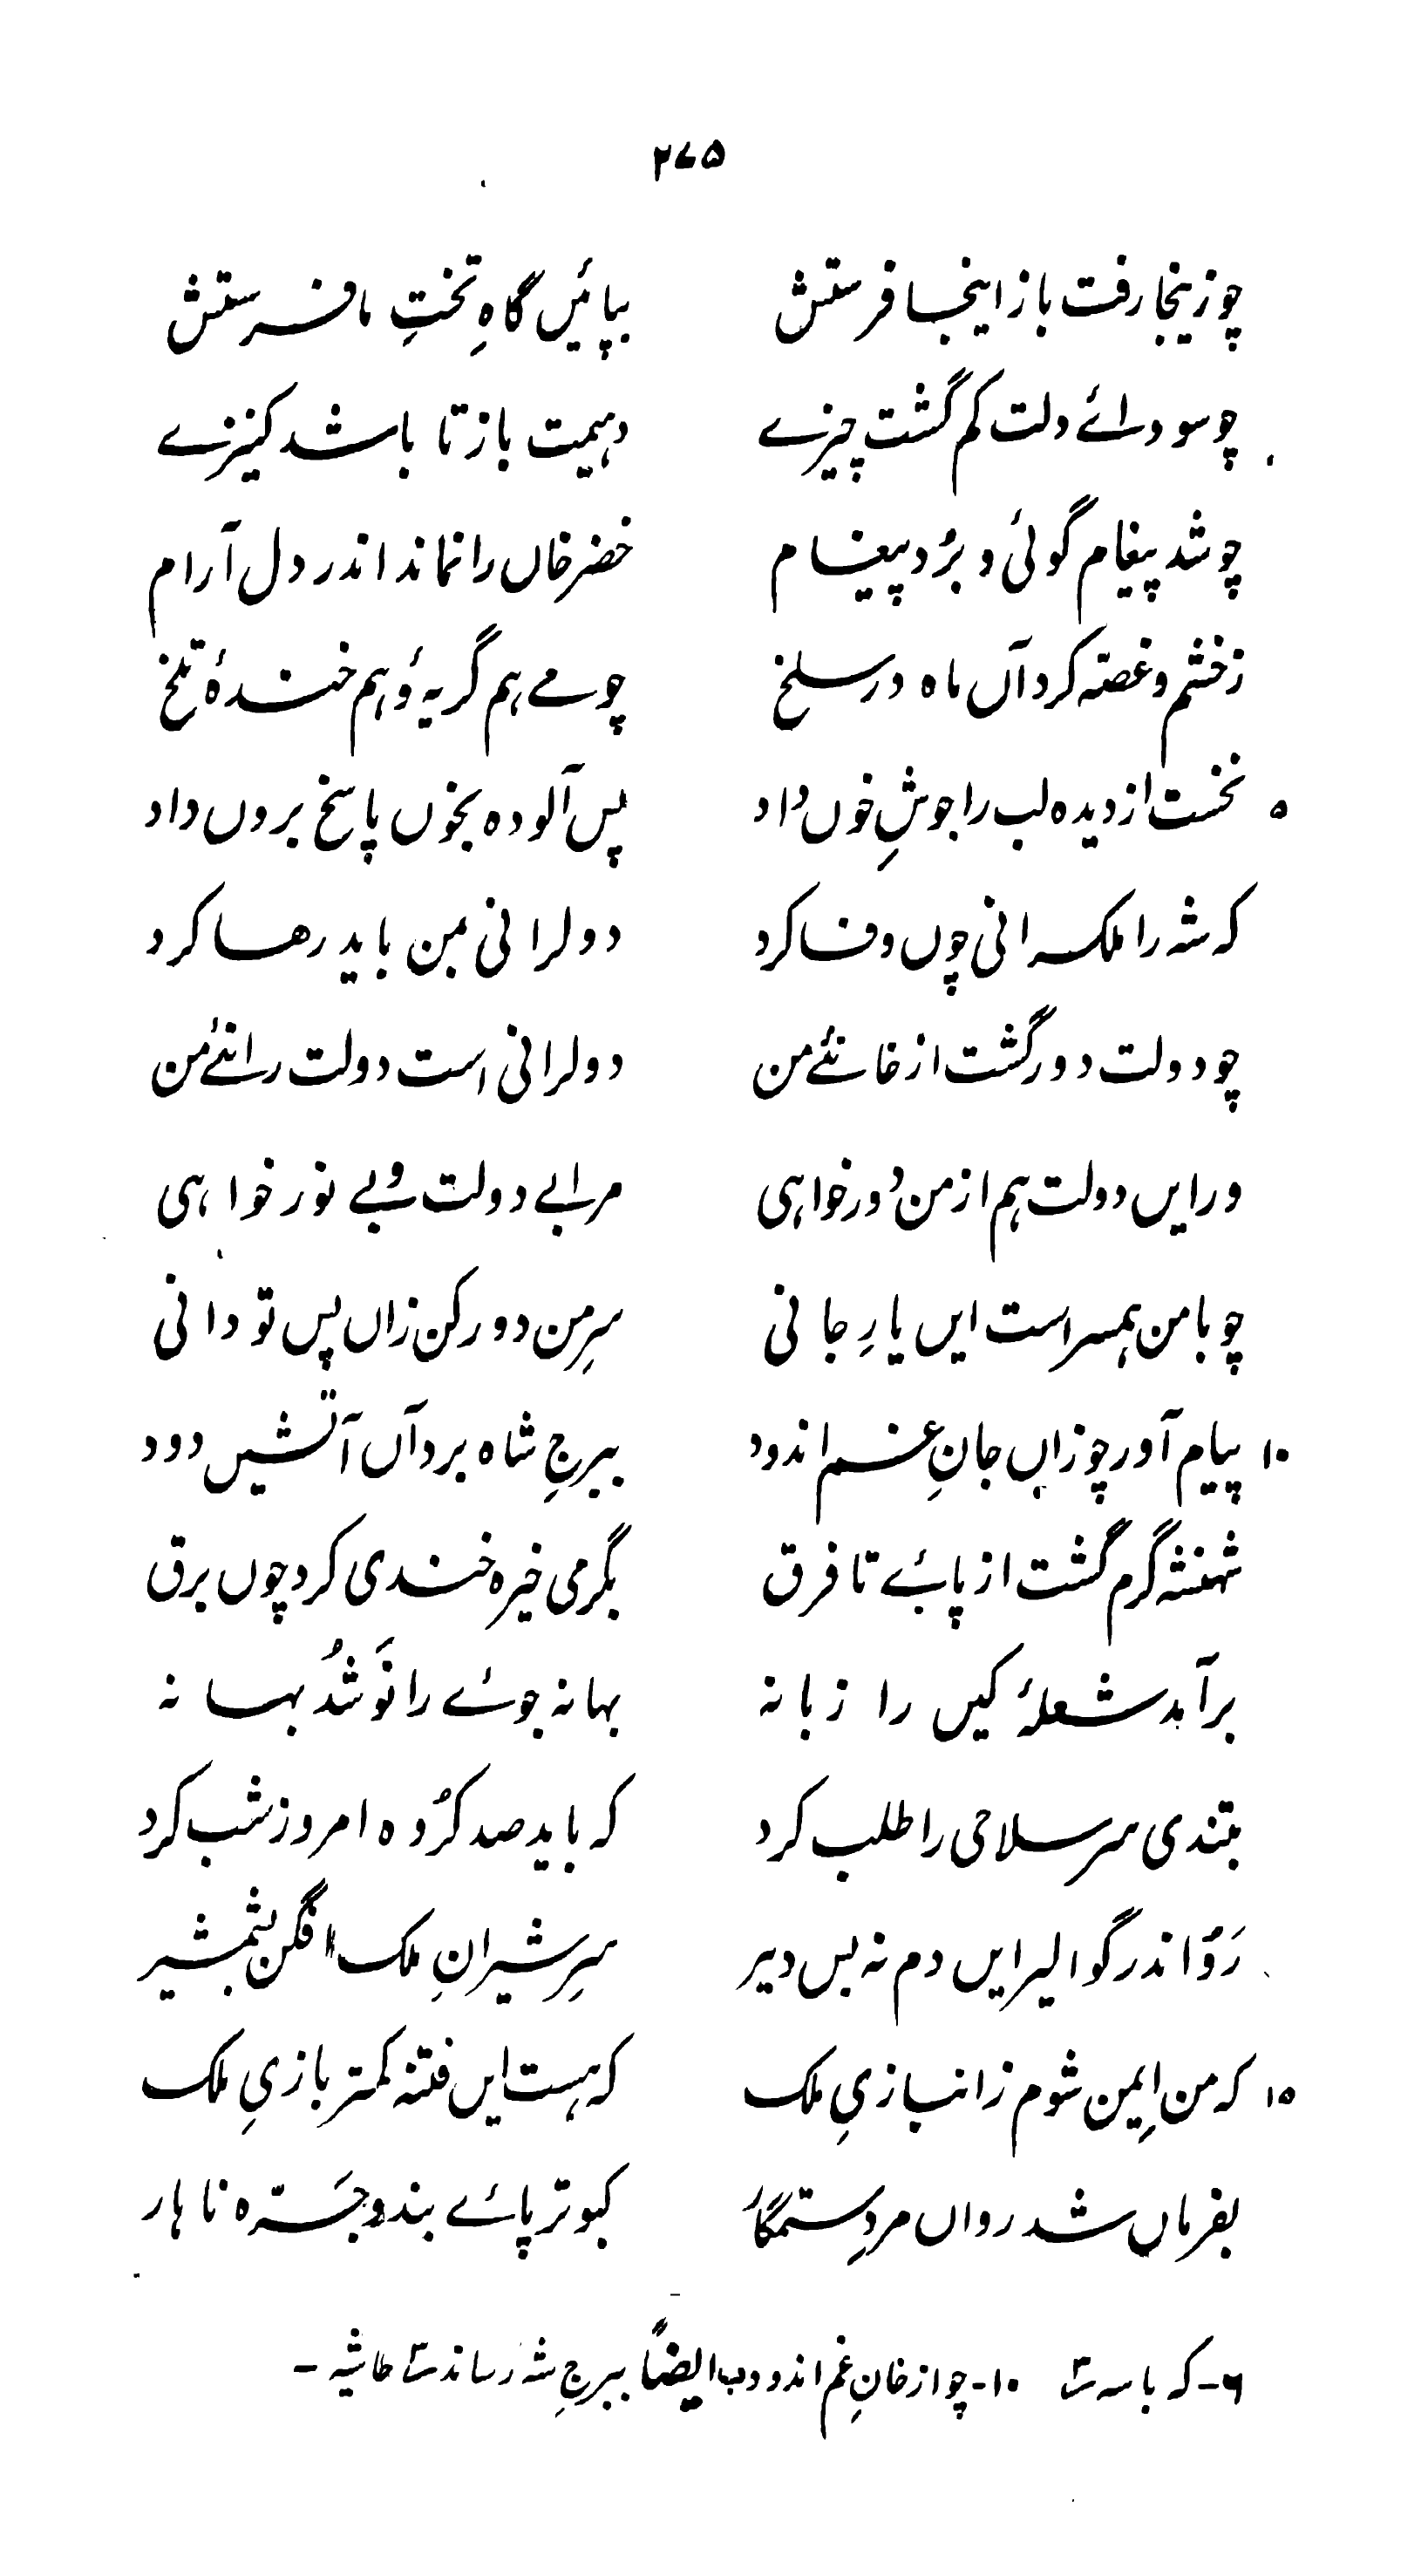 ۲۷۵
چو زینجا رفت باز اینجا فرستش بپائیں گاہِ تختِ ما فرستش
چو سودائے دلت کم گشت چیزے دہیمت باز تا باشد کنیزے
چو شد پیغام گوئی و برُد پیغام خضر خاں را نماند اندر دل آرام
زخشم و غصّہ کرد آں ماہ در سلخ چو مے ہم گریہ وُ ہم خندۂ تلخ
۵ نخست از دیدہ لب را جوشِ خوں داد پس آلودہ بخوں پاسخ بروں داد
کہ شہ را ملک رانی چوں وفا کرد دولرانی بمن باید رھا کرد
چو دولت دور گشت از خانۂ من دولرانی است دولت رانئے من
ور ایں دولت ہم از من دُور خواہی مرا بے دولت وُ بے نور خواہی
چو با من ہمسر است ایں یارِ جانی سرِ من دور کن زاں پس تو دانی
۱۰ پیام آور چو زاں جانِ غم اندود ببرجِ شاہ برد آں آتشیں دود
شہنشہ گرم گشت از پائے تا فرق بگرمی خیرہ خندی کرد چوں برق
برآمد شعلۂ کیں را زبانہ بہانہ جوئے را نَو شُد بہانہ
بتندی سر سلاحی را طلب کرد کہ باید صد کرُوہ امروز شب کرد
رَوُ اندر گوالیر ایں دم نہ بس دیر سرِ شیرانِ ملک افگن بشمشیر
۱۵ کہ من ایمن شوم زانبازیِ ملک کہ ہست ایں فتنہ کمتر بازیِ ملک
بفرماں شد رواں مردِ ستمگار کبوتر پائے بند و جَرّہ ناہار
۶- کہ با سہ ۱۰- چو از خانِ غم اندود ب ایضاً ببرجِ شہ رساند حاشیہ -